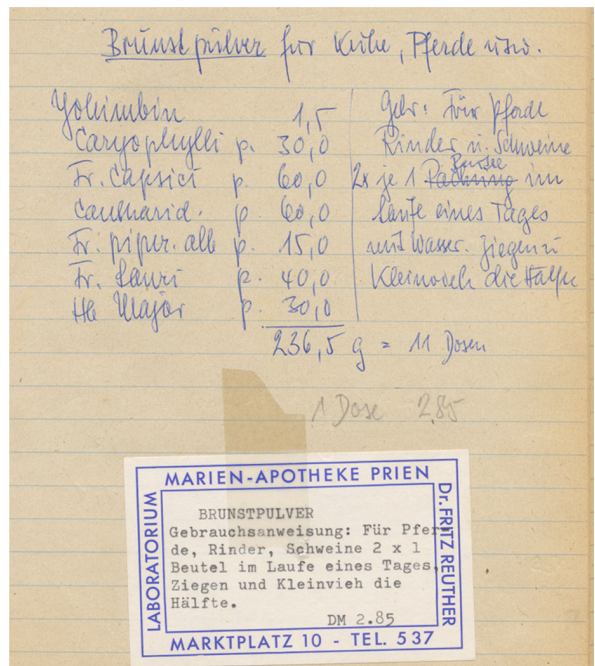 Brunstpulver für Kühe, Pferde usw.
Yohimbin 1,5
Caryophylli p. 30,0
Fr. Capsici p. 60,0
Cantharid. p. 60,0
Fr. piper. alb p. 15,0
Fr. Lauri p. 40,0
Hb Major p. 30,0
236,5 g = 11 Dosen
Gebr: Für Pferde
Rinder u. Schweine
2x je 1 Packung im
Laufe eines Tages
mit Wasser. Ziegen u
Kleinvieh die Hälfte
1 Dose 2.85
MARIEN-APOTHEKE PRIEN
LABORATORIUM
Dr. FRITZ REUTHER
BRUNSTPULVER
Gebrauchsanweisung: Für Pfer
de, Rinder, Schweine 2 x 1
Beutel im Laufe eines Tages,
Ziegen und Kleinvieh die
Hälfte.
DM 2.85
MARKTPLATZ 10 - TEL. 537